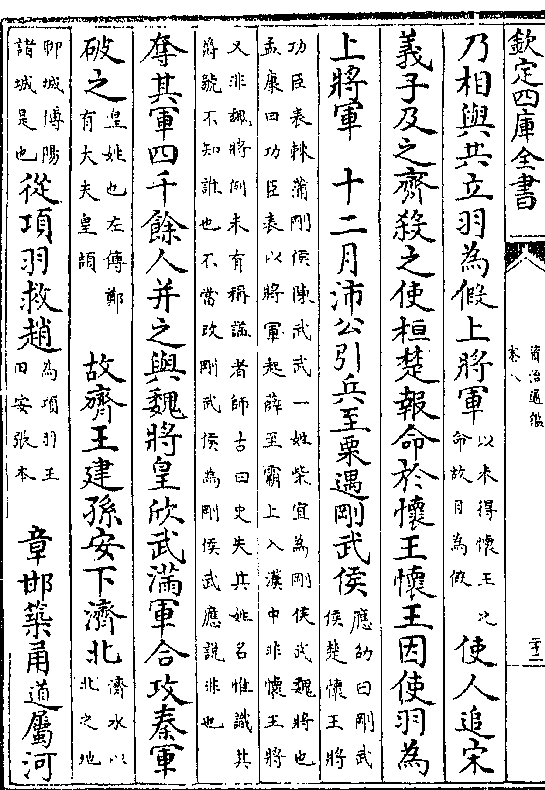 欽定四庫全書
資治通鑑
卷八
乃相與共立羽為假上將軍以未得懷王之命故且為假使人追宋
義子及之齊殺之使桓楚報命於懷王懷王因使羽為
上將軍　十二月沛公引兵至栗遇剛武侯應劭曰剛武侯楚懷王將
功臣表棘蒲剛侯陳武武一姓柴宜為剛侯武魏將也
孟康曰功臣表以將軍起薛至霸上入漢中非懷王將
又非魏將例未有稱諡者師古曰史失其姓名惟識其
爵號不知誰也不當改剛武侯為剛侯武應說非也
奪其軍四千餘人并之與魏將皇欣武滿軍合攻秦軍
破之皇姓也左傳鄭有大夫皇頡　故齊王建孫安下濟北濟水以北之地
聊城博陽諸城是也從項羽救趙為項羽王田安張本　章邯築甬道屬河